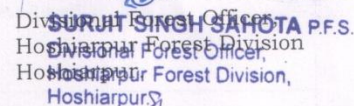 Divisional Forest Officer,
Hoshiarpur Forest Division
Hoshiarpur.
SURJIT SINGH SAHOTA P.F.S.
Divisional Forest Officer,
Hoshiarpur Forest Division,
Hoshiarpur